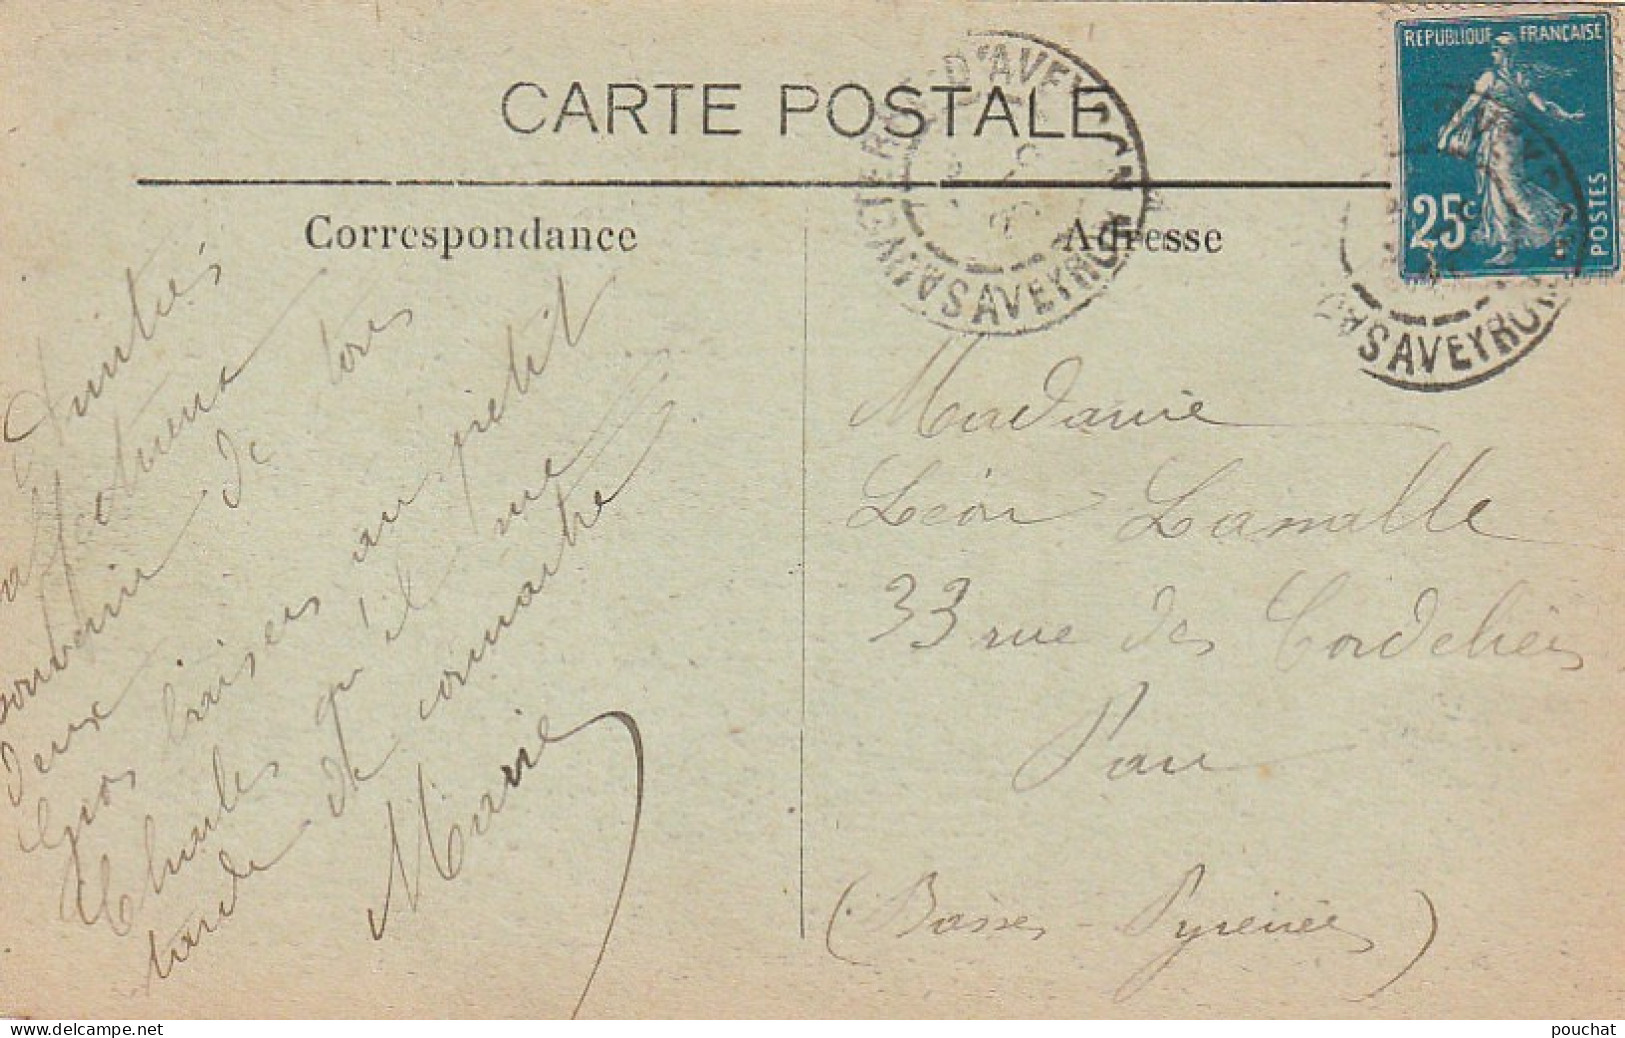 CARTE POSTALE
Correspondance
Adresse
REPUBLIQUE FRANÇAISE
25c
POSTES
D'AVEYRON
AVEYRON
AVEYRON
Amitiés
affectueux
souvenir de tous
deux
Gros baisers au petit
Charles qu'il me
tarde de connaitre
Marie
Madame
Léon Lamalle
33 rue des Cordeliers
Pau
(Basses-Pyrénées)
delcampe.net
pouchat